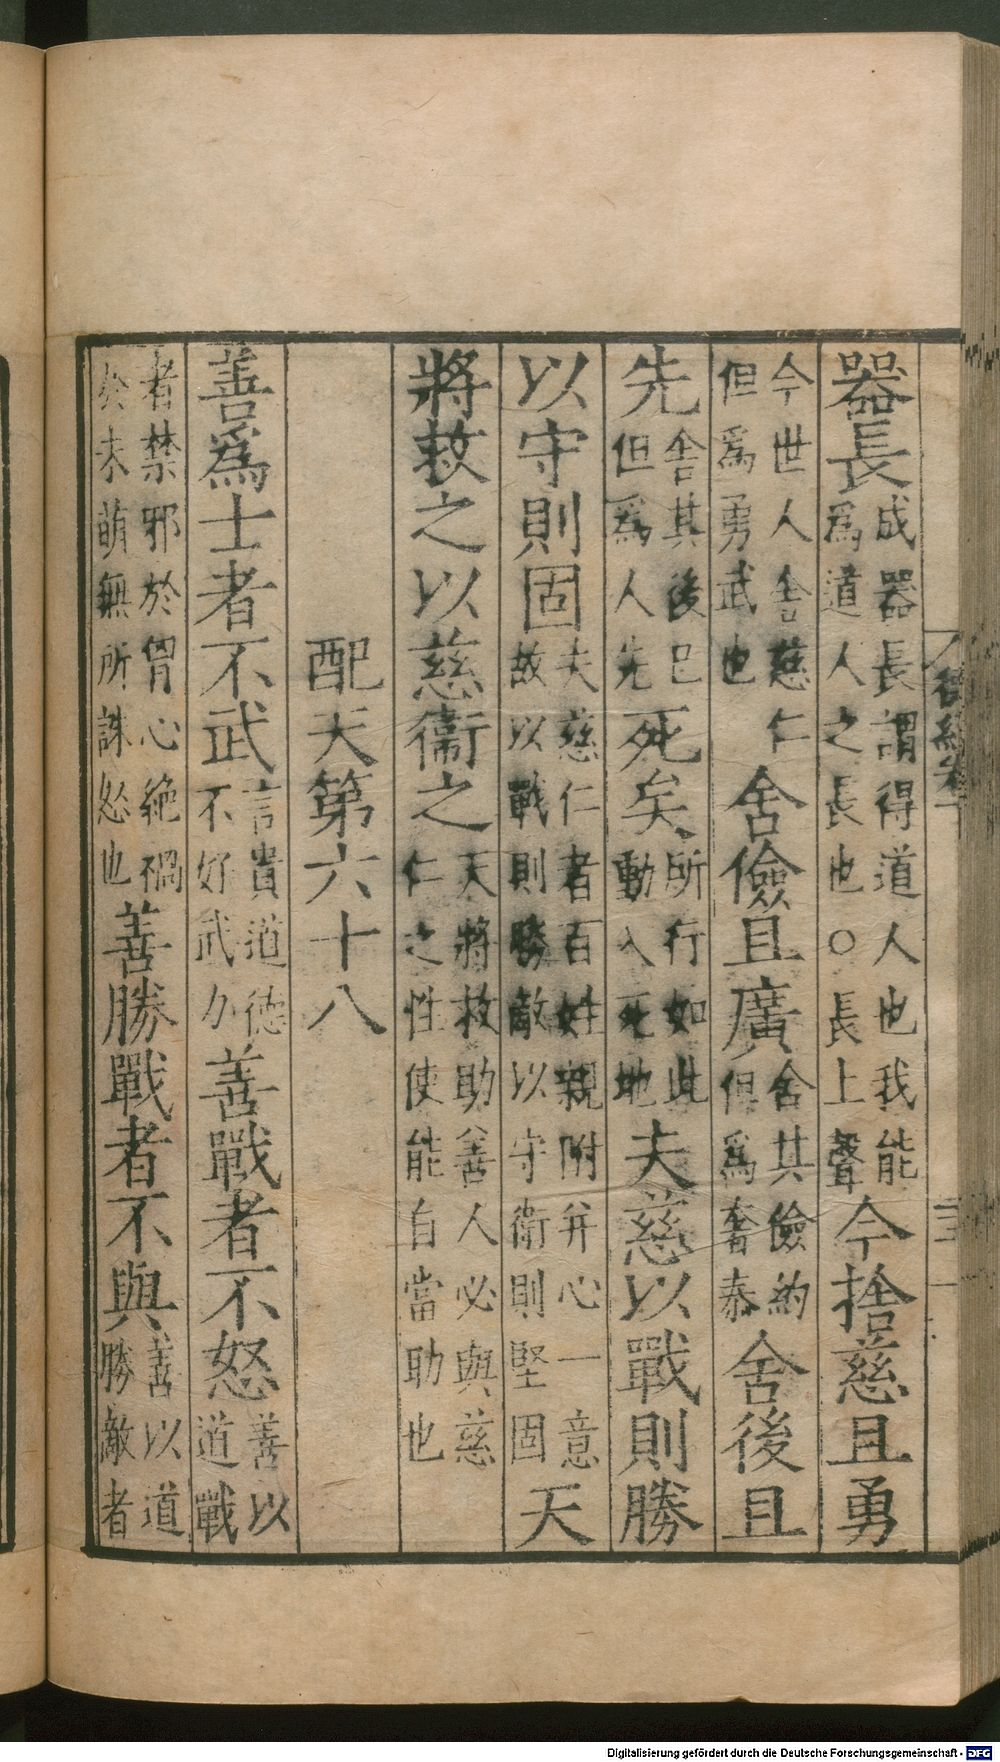 器長成器長謂得道人也我能爲道人之長也○長上聲今捨慈且勇
今世人舍慈仁但爲勇武也舍儉且廣舍其儉約但爲奢泰舍後且
先舍其後已但爲人先死矣所行如此動入死地夫慈以戰則勝
以守則固夫慈仁者百姓親附并心一意故以戰則勝敵以守衛則堅固天
將救之以慈衞之天將救助善人必與慈仁之性使能自當助也
配天第六十八
善爲士者不武言貴道德不好武力善戰者不怒善以道戰
者禁邪於胷心絶禍於未萌無所誅怒也善勝戰者不與善以道勝敵者
Digitalisierung gefördert durch die Deutsche Forschungsgemeinschaft - DFG